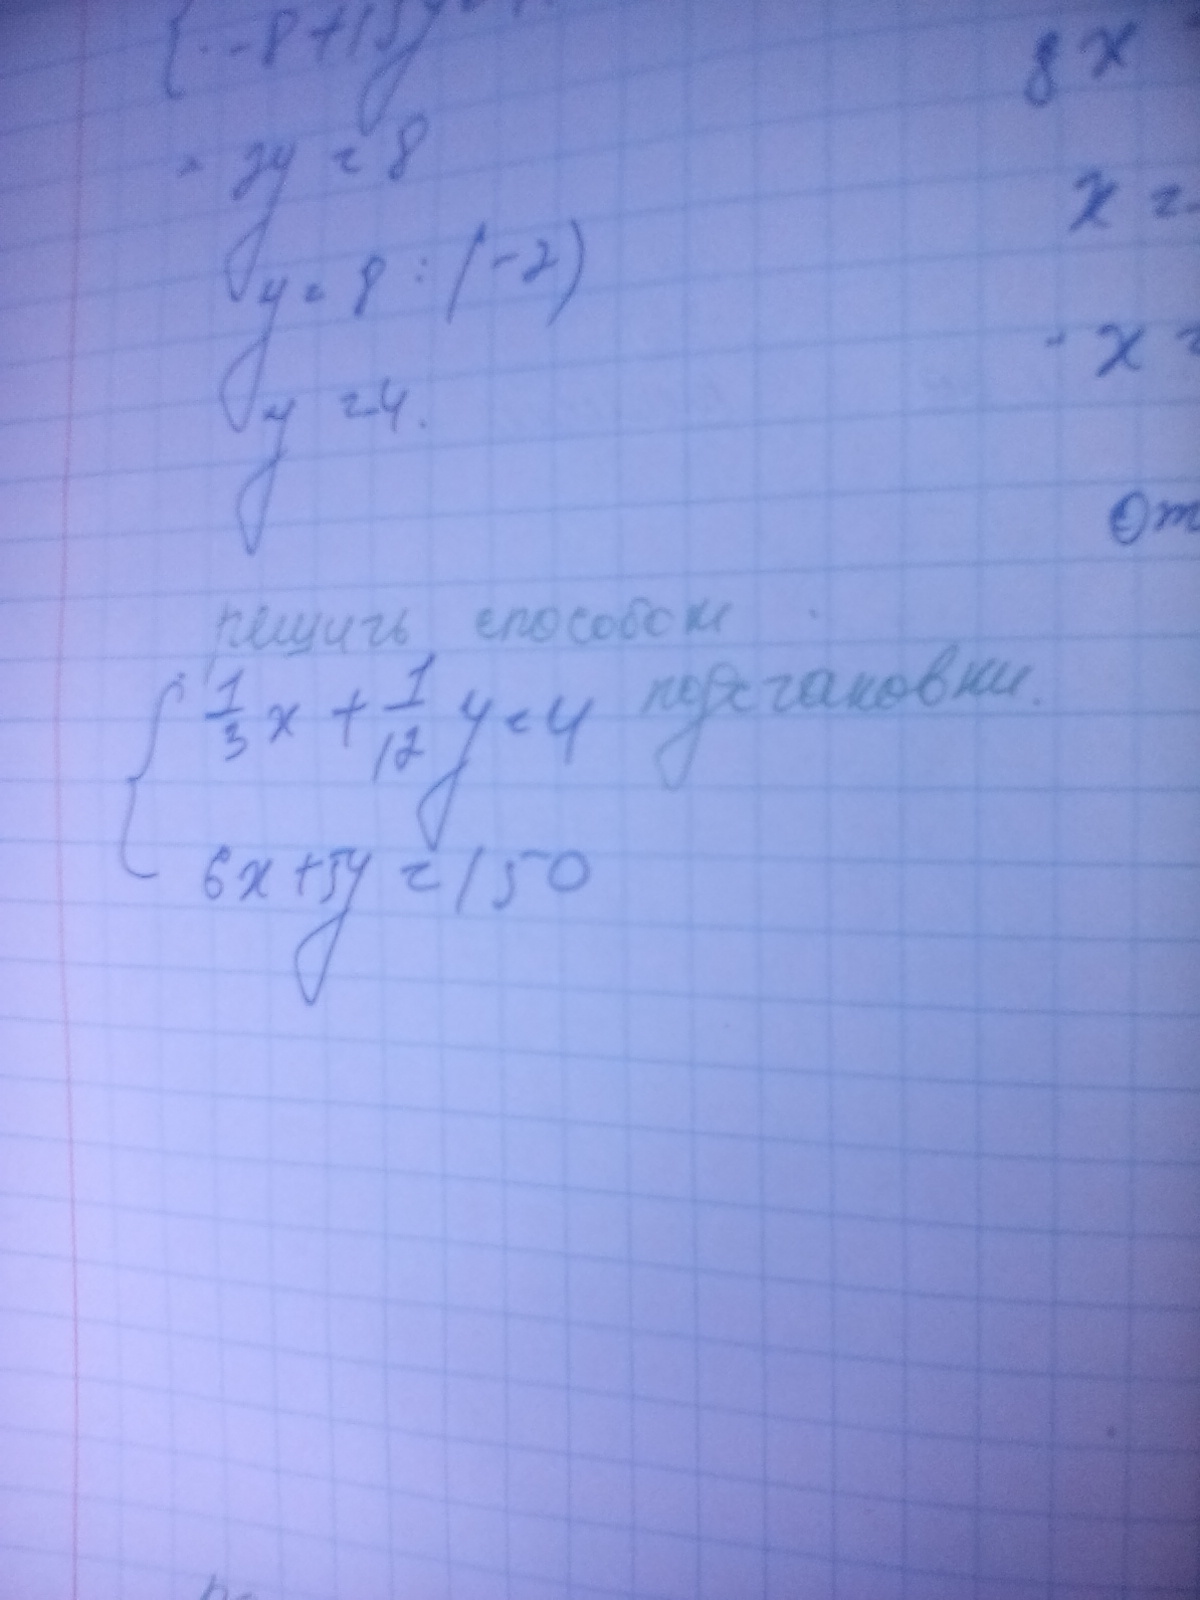 -8+15y
- 2y = 8
y = 8 : (-2)
y = 4.
8x
x =
x =
От
решить способом
подстановки.
1/3 x + 1/12 y = 4
6x + 5y = 150